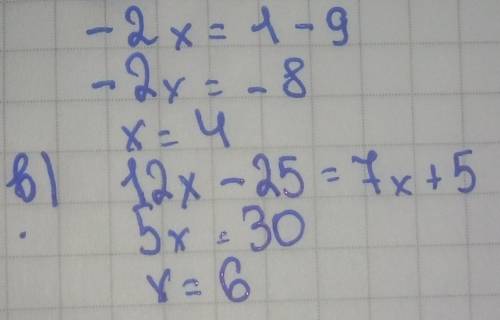 -2x = 1 - 9
-2x = -8
x = 4
в) 12x - 25 = 7x + 5
5x = 30
x = 6